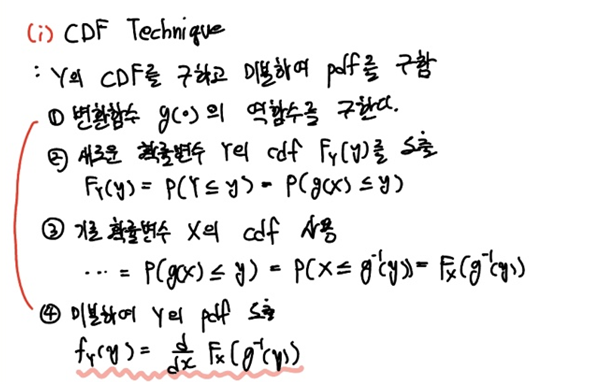 (i) CDF Technique
: Y의 CDF를 구하고 미분하여 pdf를 구함
① 변환함수 g(·)의 역함수를 구한다.
② 새로운 확률변수 Y의 cdf F_Y(y)를 도출
F_Y(y) = P(Y ≤ y) = P(g(X) ≤ y)
③ 기존 확률변수 X의 cdf 사용
... = P(g(X) ≤ y) = P(X ≤ g⁻¹(y)) = F_X(g⁻¹(y))
④ 미분하여 Y의 pdf 도출
f_Y(y) = d/dx F_X(g⁻¹(y))